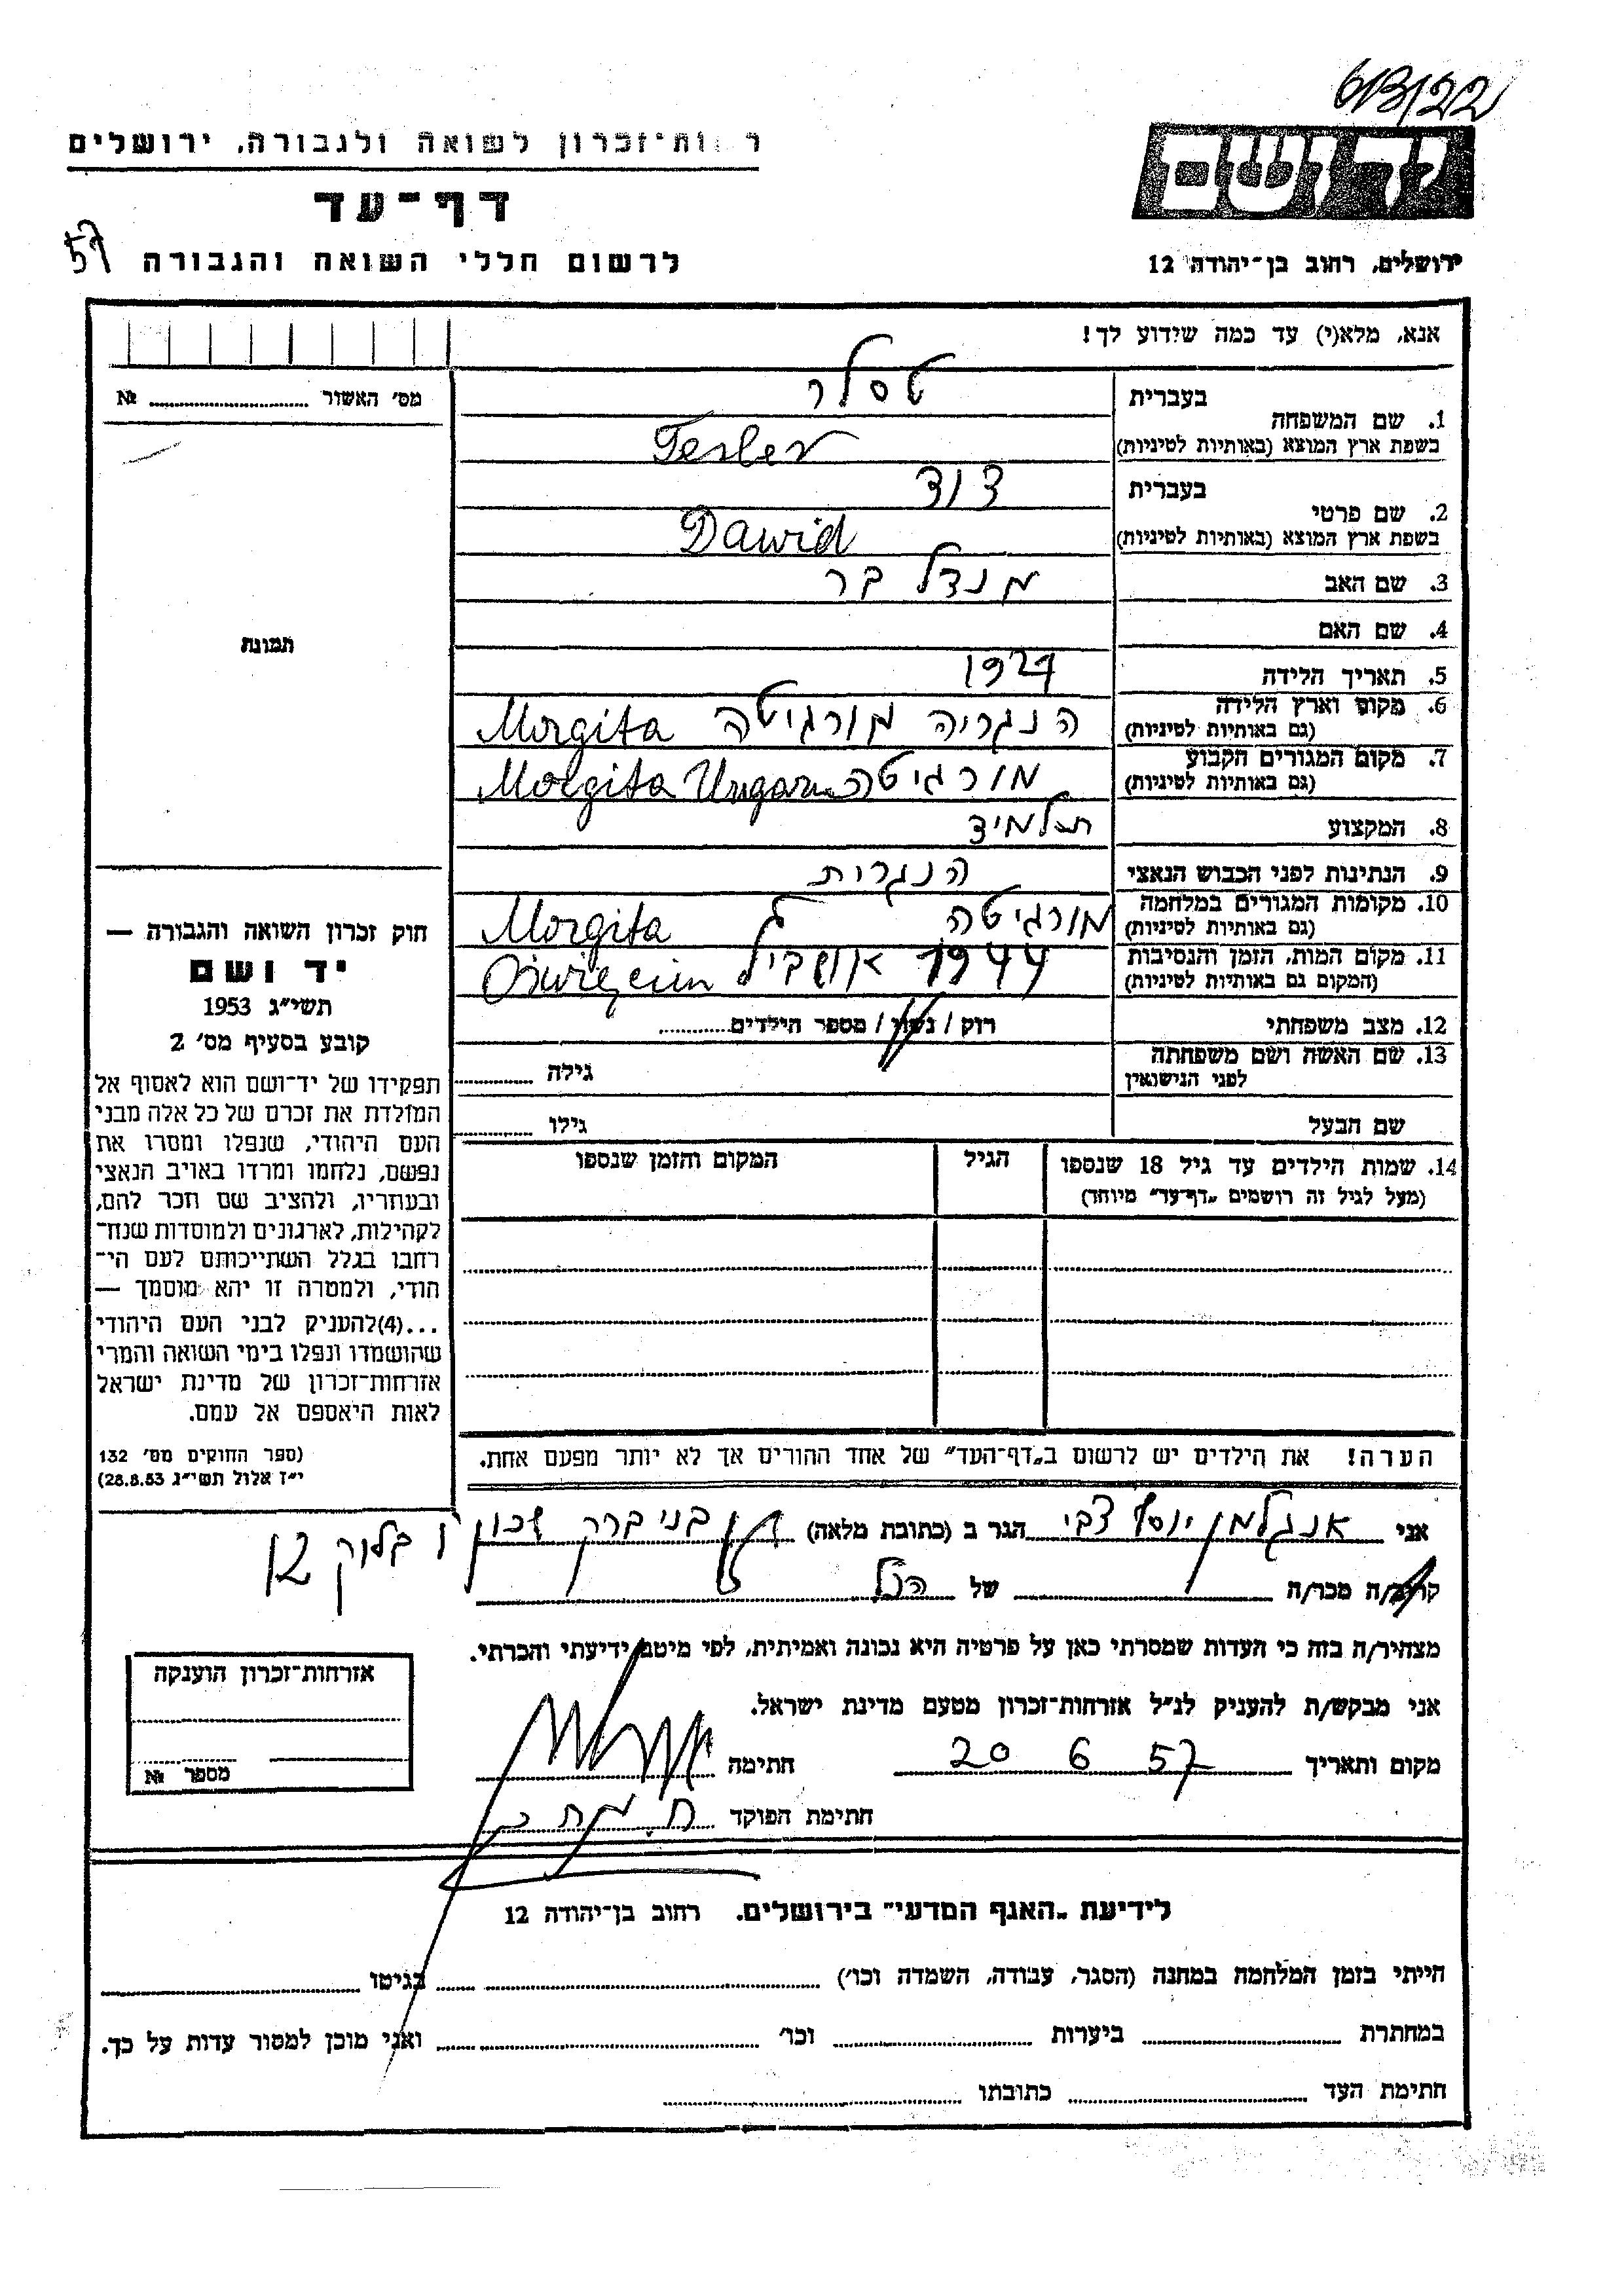 רשות־זכרון לשואה ולגבורה, ירושלים
דף־עד
לרשום חללי השואה והגבורה
57
יד ושם
ירושלים, רחוב בן־יהודה 12
אנא, מלא(י) עד כמה שידוע לך!
מס׳ האשור ........ №
תמונת
1. שם המשפחה בעברית טסלר
בשפת ארץ המוצא (באותיות לטיניות) Tesler
2. שם פרטי בעברית דוד
בשפת ארץ המוצא (באותיות לטיניות) Dawid
3. שם האב מנדל בר
4. שם האם
5. תאריך הלידה
6. מקום וארץ הלידה (גם באותיות לטיניות) הנגריה מורגיטה Morgita
7. מקום המגורים הקבוע (גם באותיות לטיניות) מורגיטה Morgita
8. המקצוע תלמיד
9. הנתינות לפני הכבוש הנאצי הנגרית
10. מקומות המגורים במלחמה (גם באותיות לטיניות) מורגיטה Morgita
11. מקום המות, הזמן והנסיבות (המקום גם באותיות לטיניות) 1944
12. מצב משפחתי רוק / נשוי / מספר הילדים
13. שם האשה ושם משפחתה לפני הנישואין גילה
שם הבעל גילו
14. שמות הילדים עד גיל 18 שנספו הגיל המקום והזמן שנספו
(מעל לגיל זה רושמים „דף־עד״ מיוחד)
הערה! את הילדים יש לרשום ב„דף־העד״ של אחד ההורים אך לא יותר מפעם אחת.
חוק זכרון השואה והגבורה —
יד ושם
תשי״ג 1953
קובע בסעיף מס׳ 2
תפקידו של יד־ושם הוא לאסוף אל
המולדת את זכרם של כל אלה מבני
העם היהודי, שנפלו ומסרו את
נפשם, נלחמו ומרדו באויב הנאצי
ובעוזריו, ולהציב שם וזכר להם,
לקהילות, לארגונים ולמוסדות שנח־
רבו בגלל השתייכותם לעם הי־
הודי, ולמטרה זו יהא מוסמך —
...(4)להעניק לבני העם היהודי
שהושמדו ונפלו בימי השואה והמרי
אזרחות־זכרון של מדינת ישראל
לאות היאספם אל עמם.
(ספר החוקים מס׳ 132
י״ז אלול תשי״ג 28.8.53)
אני אנגלמן יוסף צבי הגר ב (כתובת מלאה) בני ברק שכון ו בלוק 12
קרוב/ה מכר/ה של הנ״ל
מצהיר/ה בזה כי העדות שמסרתי כאן על פרטיה היא נכונה ואמיתית, לפי מיטב ידיעתי והכרתי.
אני מבקש/ת להעניק לנ״ל אזרחות־זכרון מטעם מדינת ישראל.
מקום ותאריך 20 6 57 חתימה
חתימת הפוקד
אזרחות־זכרון הוענקה
מספר №
לידיעת „האגף המדעי״ בירושלים. רחוב בן־יהודה 12
הייתי בזמן המלחמה במחנה (הסגר, עבודה, השמדה וכו׳) בגיטו
במחתרת ביערות וכו׳ ואני מוכן למסור עדות על כך.
חתימת העד כתובתו